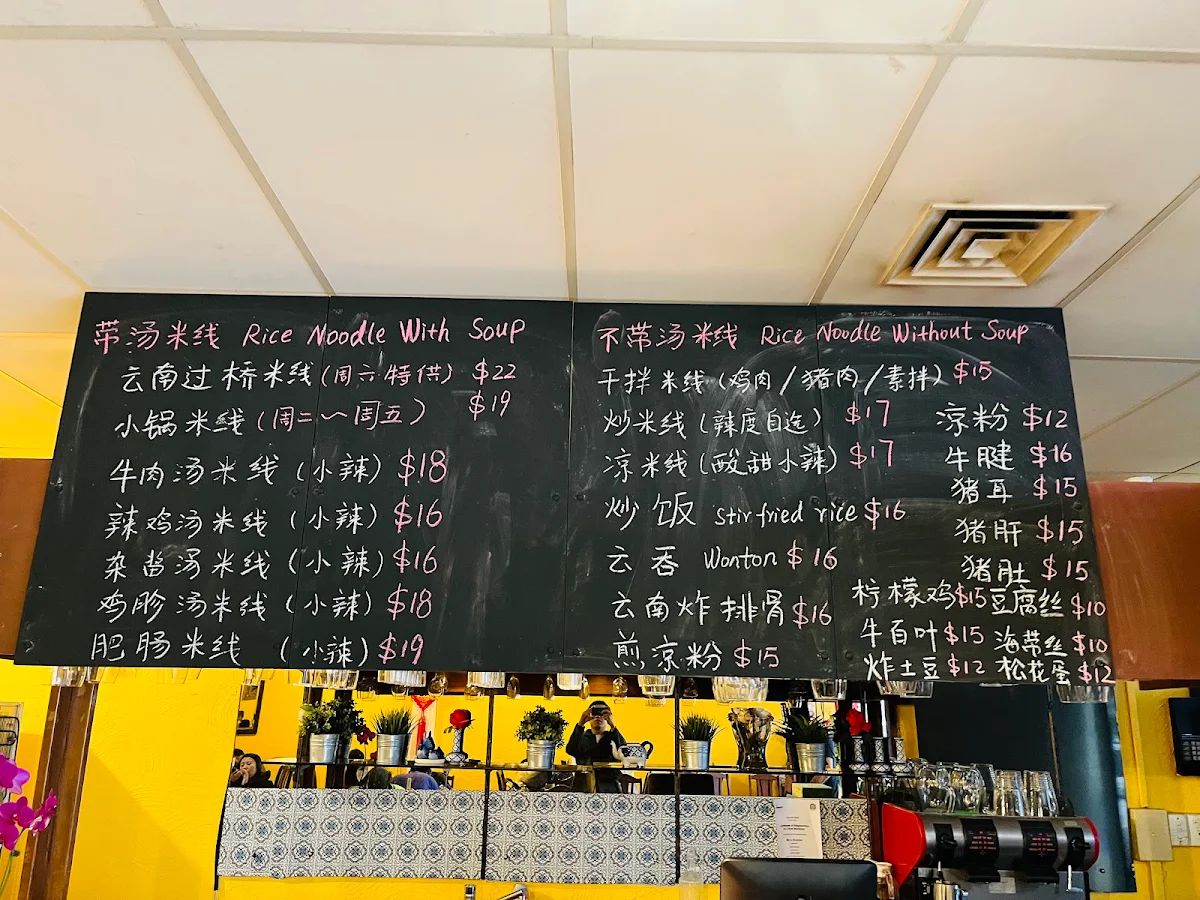 带汤米线 Rice Noodle With Soup
云南过桥米线(周六特供) $22
小锅米线(周二～周五) $19
牛肉汤米线(小辣) $18
辣鸡汤米线(小辣) $16
杂酱汤米线(小辣) $16
鸡胗汤米线(小辣) $18
肥肠米线 (小辣) $19
不带汤米线 Rice Noodle Without Soup
干拌米线(鸡肉/猪肉/素拌) $15
炒米线(辣度自选) $17
凉米线(酸甜小辣) $17
炒饭 stir fried rice $16
云吞 Wonton $16
云南炸排骨 $16
煎凉粉 $15
凉粉 $12
牛腱 $16
猪耳 $15
猪肝 $15
猪肚 $15
柠檬鸡 $15 豆腐丝 $10
牛百叶 $15 海带丝 $10
炸土豆 $12 松花蛋 $12